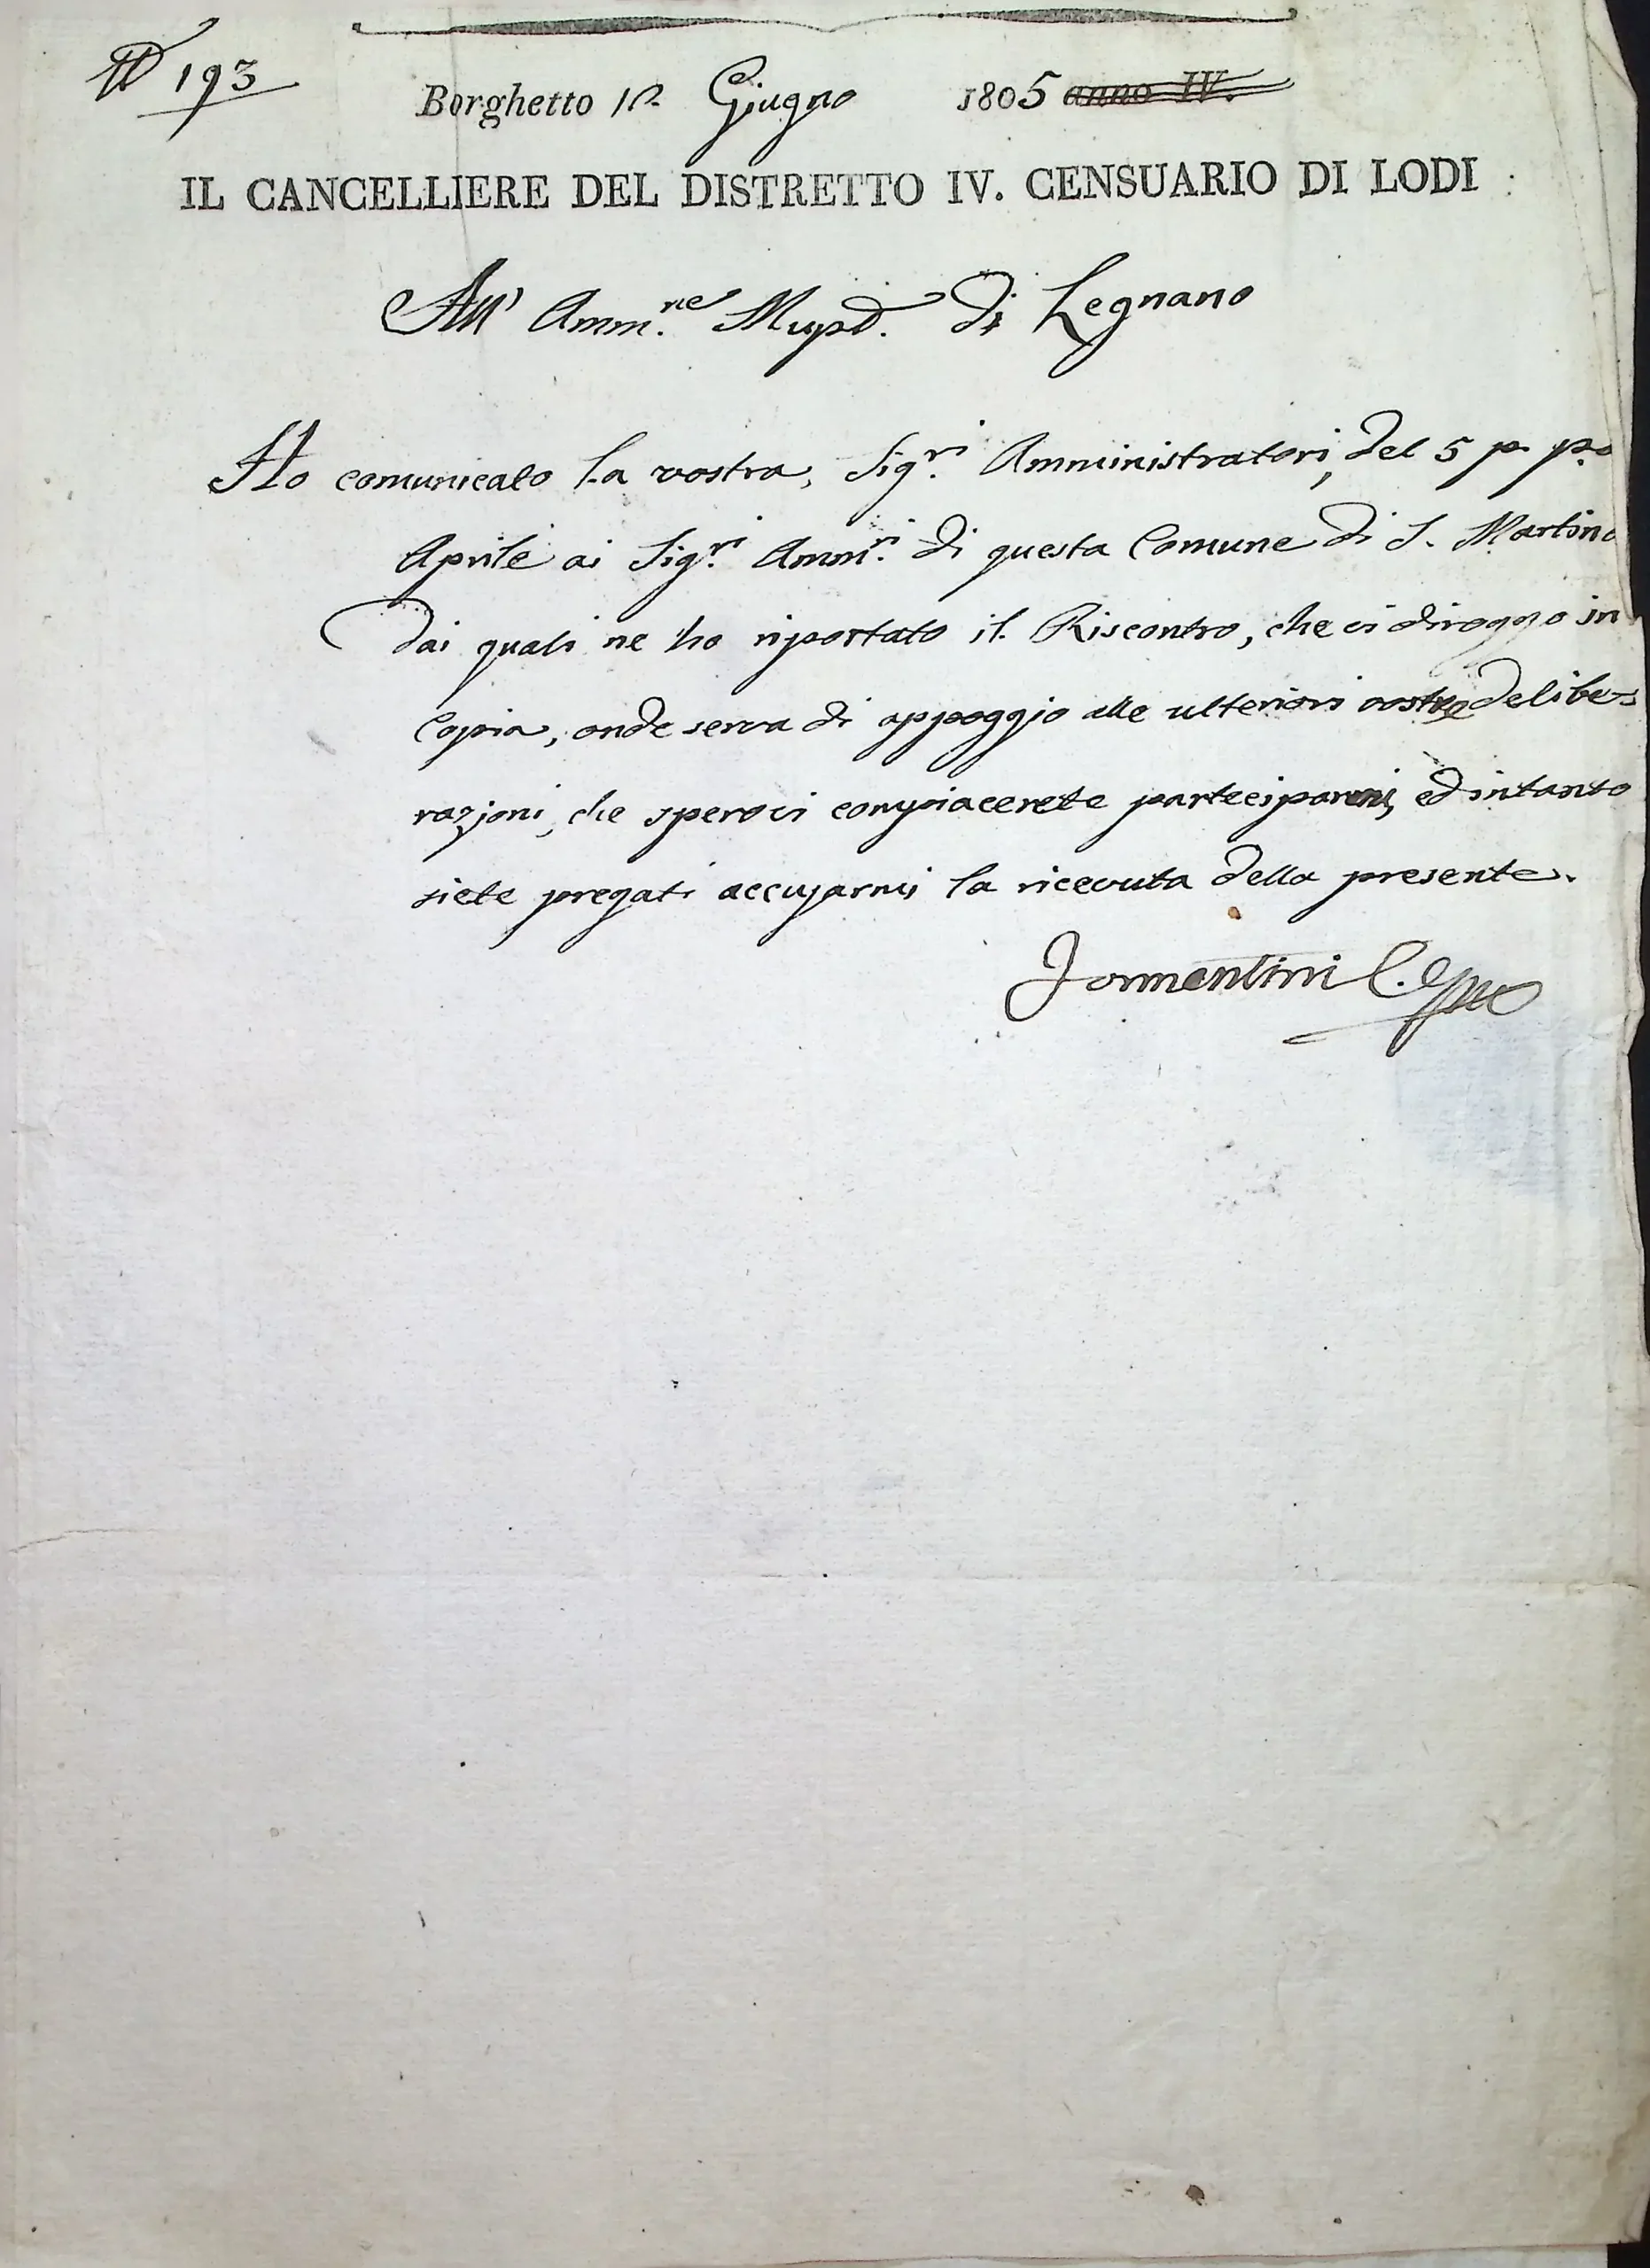 N 193
Borghetto 12 Giugno 1805 anno IV.
IL CANCELLIERE DEL DISTRETTO IV. CENSUARIO DI LODI
All' Amm.ne Mupd. di Legnano
Ho comunicato la vostra, Sig.ri Amministratori, del 5 p. p.o
Aprile ai Sig.ri Amm.ri di questa Comune di S. Martino
dai quali ne ho riportato il Riscontro, che vi diroggo in
Copia, onde serva di appoggio alle ulteriori vostre delibe=
razioni, che spero vi compiacerete parteciparmi, ed intanto
siete pregati accusarmi la ricevuta della presente.
Formentini C.